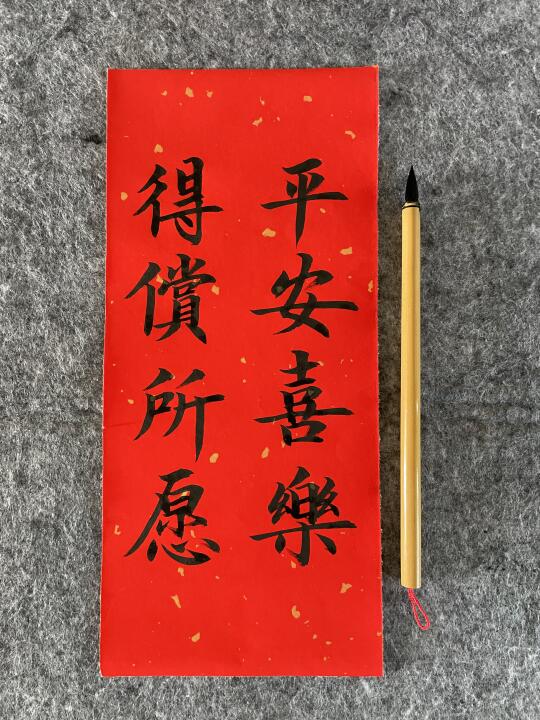 平安喜樂
得償所愿